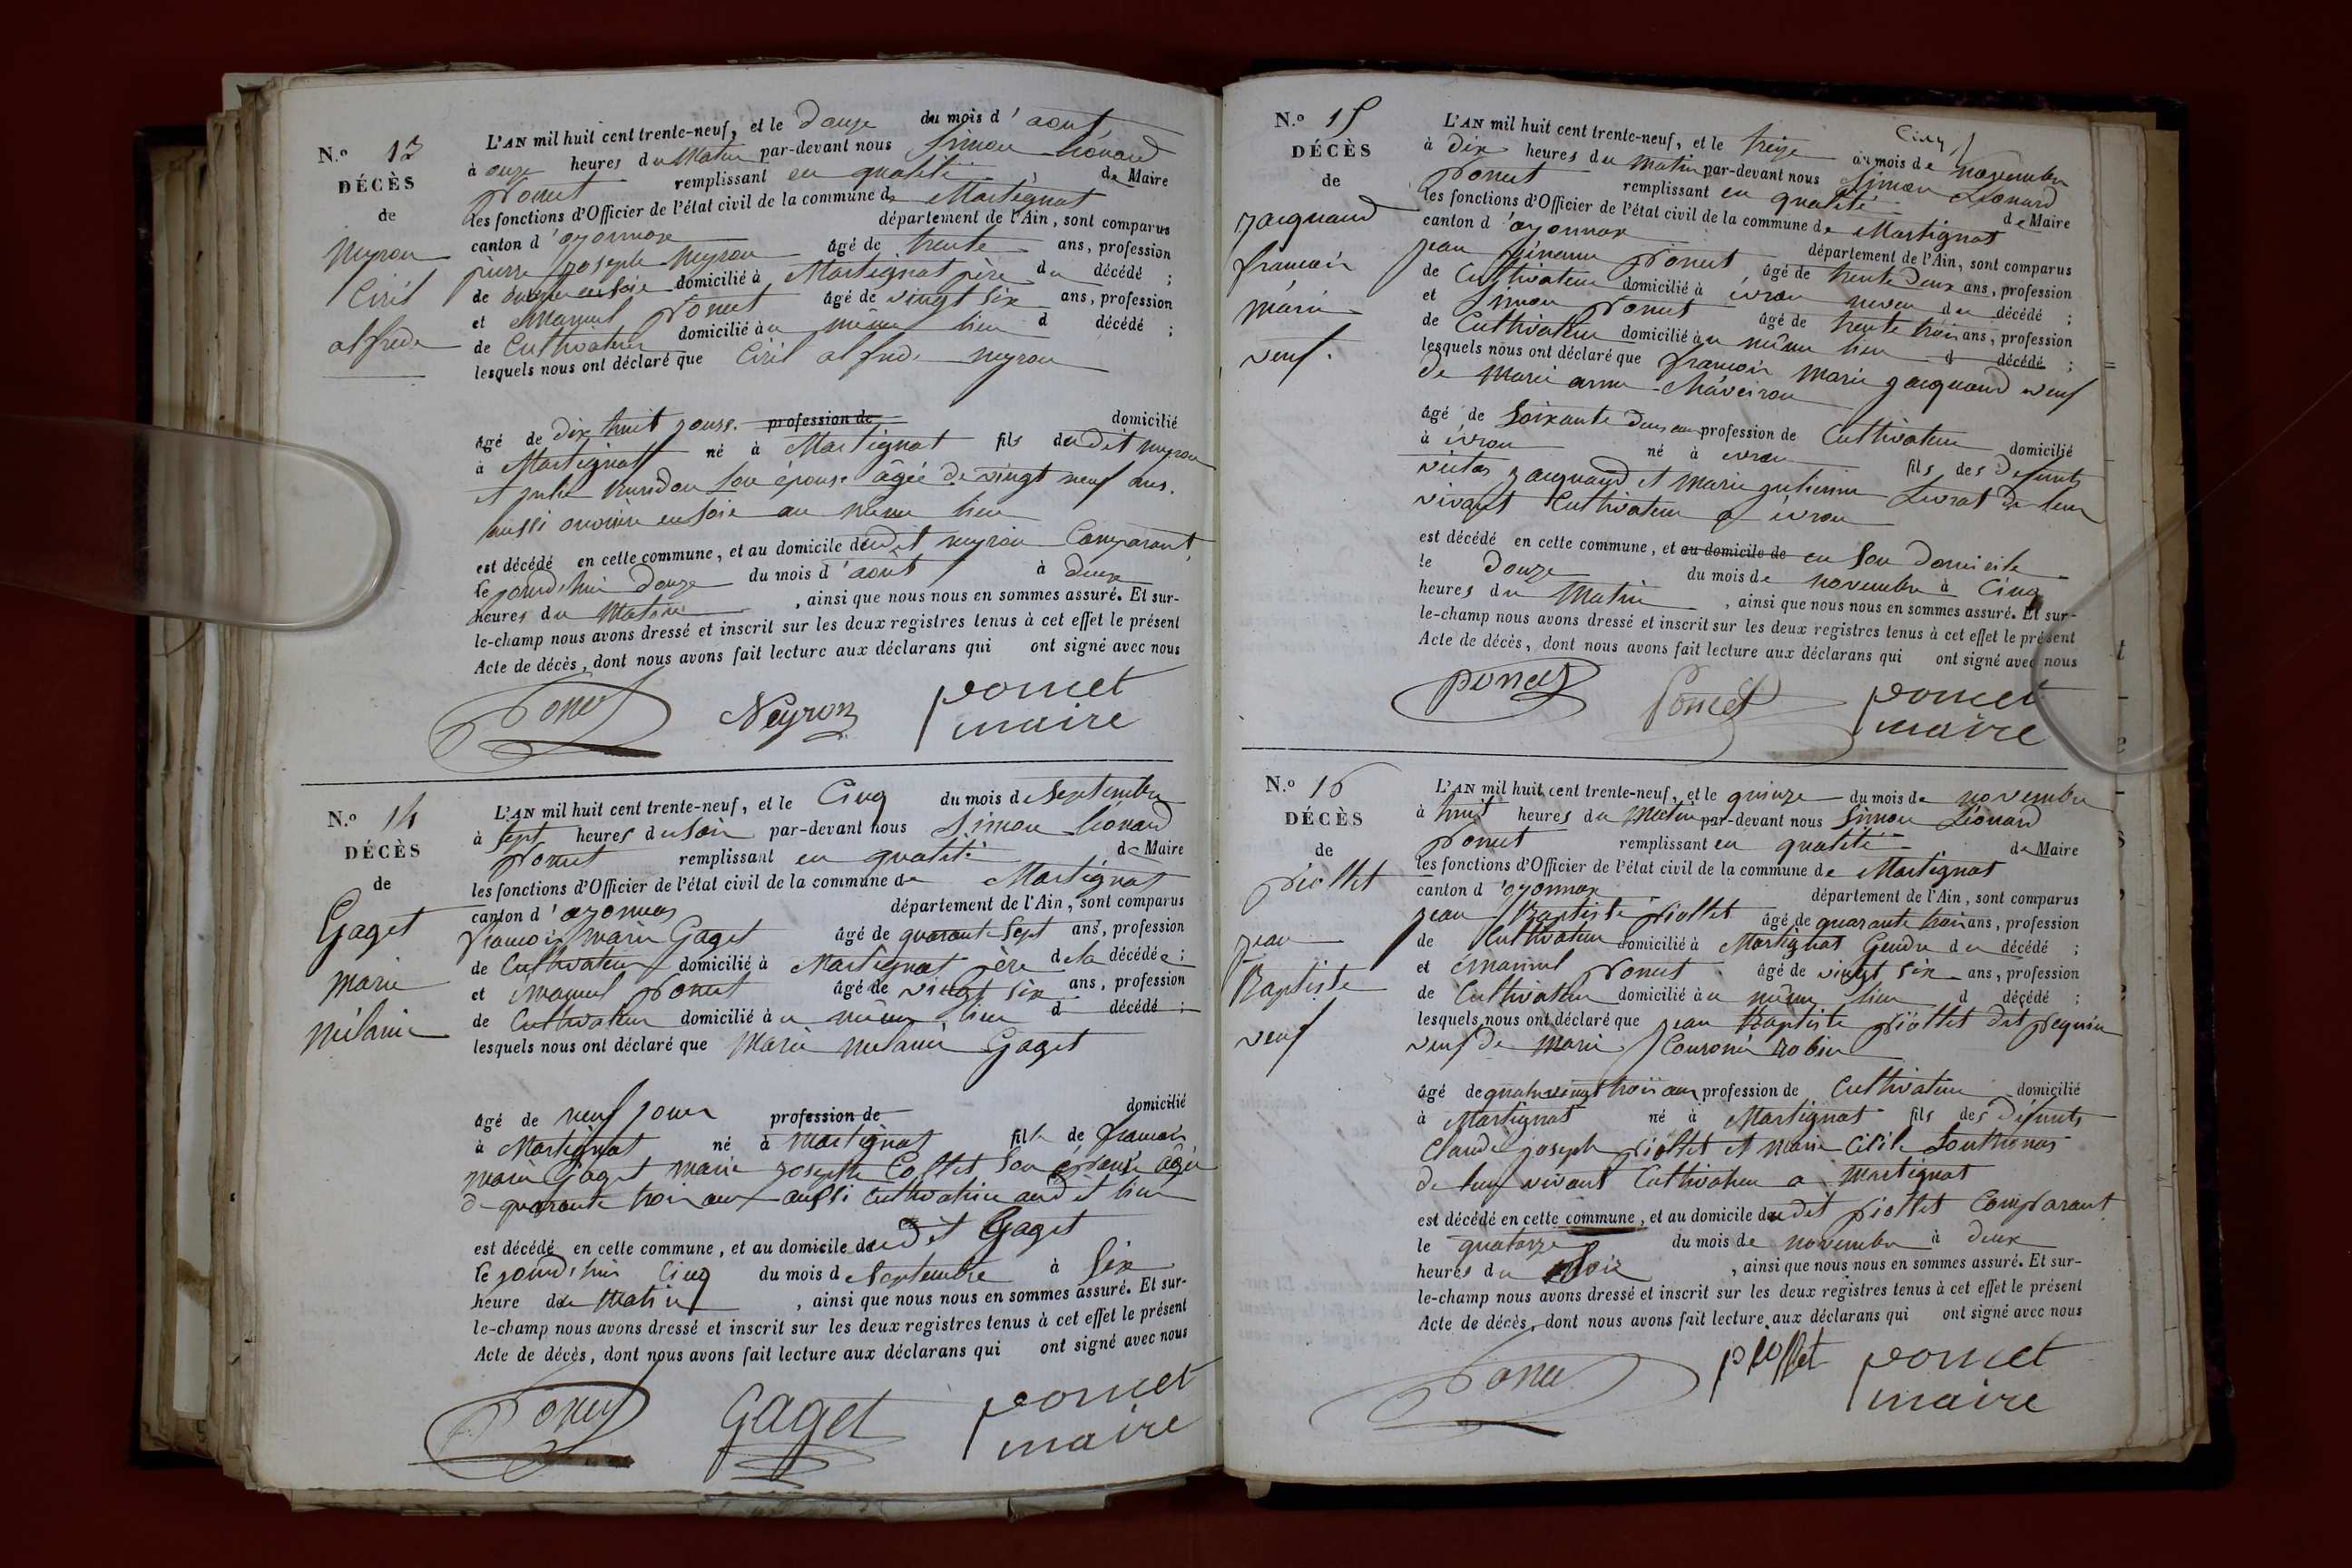 N.º 13
DÉCÈS
de
Neyron
Ciril
alfrede
L'AN mil huit cent trente-neuf, et le douze du mois d'aout
à onze heures du Matin par-devant nous Simon Léonard
Poncet remplissant en qualité de Maire
les fonctions d'Officier de l'état civil de la commune de Martignat
canton d'oyonnax département de l'Ain, sont comparus
pierre joseph Neyron âgé de trente ans, profession
de ouvrier en soie domicilié à Martignat père du décédé ;
et Emanuel Poncet âgé de vingt six ans, profession
de Cultivateur domicilié au même lieu d décédé ;
lesquels nous ont déclaré que Ciril alfrede neyron
âgé de dix huit jours. profession de domicilié
à Martignat né à Martignat fils du dit neyron
et julie son épouse âgée de vingt neuf ans.
aussi ouvrière en soie au même lieu
est décédé en cette commune, et au domicile dudit neyron Comparant
le jourd'hui douze du mois d'aout à deux
heures du Matin, ainsi que nous nous en sommes assuré. Et sur-
le-champ nous avons dressé et inscrit sur les deux registres tenus à cet effet le présent
Acte de décès, dont nous avons fait lecture aux déclarans qui ont signé avec nous
Poncet Neyron poncet
maire
N.º 14
DÉCÈS
de
Gaget
marie
mélanie
L'AN mil huit cent trente-neuf, et le Cinq du mois de Septembre
à Sept heures du Soir par-devant nous Simon Léonard
Poncet remplissant en qualité de Maire
les fonctions d'Officier de l'état civil de la commune de Martignat
canton d'oyonnax département de l'Ain, sont comparus
françois marie Gaget âgé de quarante Sept ans, profession
de Cultivateur domicilié à Martignat père de la décédée ;
et Emanuel Poncet âgé de vingt six ans, profession
de Cultivateur domicilié au même lieu d décédé ;
lesquels nous ont déclaré que Marie mélanie Gaget
âgé de neuf jours profession de domicilié
à Martignat né à Martignat fille de françois
marie Gaget marie josephte Collet son épouse âgée
de quarante trois ans aussi Cultivatrice audit lieu
est décédé en cette commune, et au domicile dudit Gaget
le jourd'hui Cinq du mois de Septembre à Six
heure du Matin, ainsi que nous nous en sommes assuré. Et sur-
le-champ nous avons dressé et inscrit sur les deux registres tenus à cet effet le présent
Acte de décès, dont nous avons fait lecture aux déclarans qui ont signé avec nous
Poncet Gaget poncet
maire
N.º 15
DÉCÈS
de
jacquand
francois
marie
veuf.
L'AN mil huit cent trente-neuf, et le treize du mois de novembre
à dix heures du Matin par-devant nous Simon Léonard
Poncet remplissant en qualité de Maire
les fonctions d'Officier de l'état civil de la commune de Martignat
canton d'oyonnax département de l'Ain, sont comparus
jean Poncet âgé de trente deux ans, profession
de Cultivateur domicilié à évron neveu du décédé ;
et Simon Poncet âgé de trente trois ans, profession
de Cultivateur domicilié au même lieu d décédé ;
lesquels nous ont déclaré que francois Marie jacquand veuf
de Marie anne
âgé de Soixante deux ans profession de Cultivateur domicilié
à évron né à évron fils des défunts
victor jacquand et Marie julienne Livrat de leur
vivant Cultivateur à évron
est décédé en cette commune, et au domicile de en Son domicile
le douze du mois de novembre à Cinq
heures du Matin, ainsi que nous nous en sommes assuré. Et sur-
le-champ nous avons dressé et inscrit sur les deux registres tenus à cet effet le présent
Acte de décès, dont nous avons fait lecture aux déclarans qui ont signé avec nous
poncet Poncet poncet
maire
N.º 16
DÉCÈS
de
piollet
jean
Baptiste
veuf
L'AN mil huit cent trente-neuf, et le quinze du mois de novembre
à huit heures du Matin par-devant nous Simon Léonard
Poncet remplissant en qualité de Maire
les fonctions d'Officier de l'état civil de la commune de Martignat
canton d'oyonnax département de l'Ain, sont comparus
jean Baptiste piollet âgé de quarante trois ans, profession
de Cultivateur domicilié à Martignat Gendre du décédé ;
et émanuel Poncet âgé de vingt six ans, profession
de Cultivateur domicilié au même lieu d décédé ;
lesquels nous ont déclaré que jean Baptiste piollet dit
veuf de Marie Robin
âgé de quatre vingt trois ans profession de Cultivateur domicilié
à Martignat né à Martignat fils des défunts
Claude joseph piollet et Marie Cécile Southonas
de leur vivant Cultivateur a Martignat
est décédé en cette commune, et au domicile dudit piollet Comparant
le quatorze du mois de novembre à deux
heures du Soir, ainsi que nous nous en sommes assuré. Et sur-
le-champ nous avons dressé et inscrit sur les deux registres tenus à cet effet le présent
Acte de décès, dont nous avons fait lecture aux déclarans qui ont signé avec nous
Poncet piollet poncet
maire